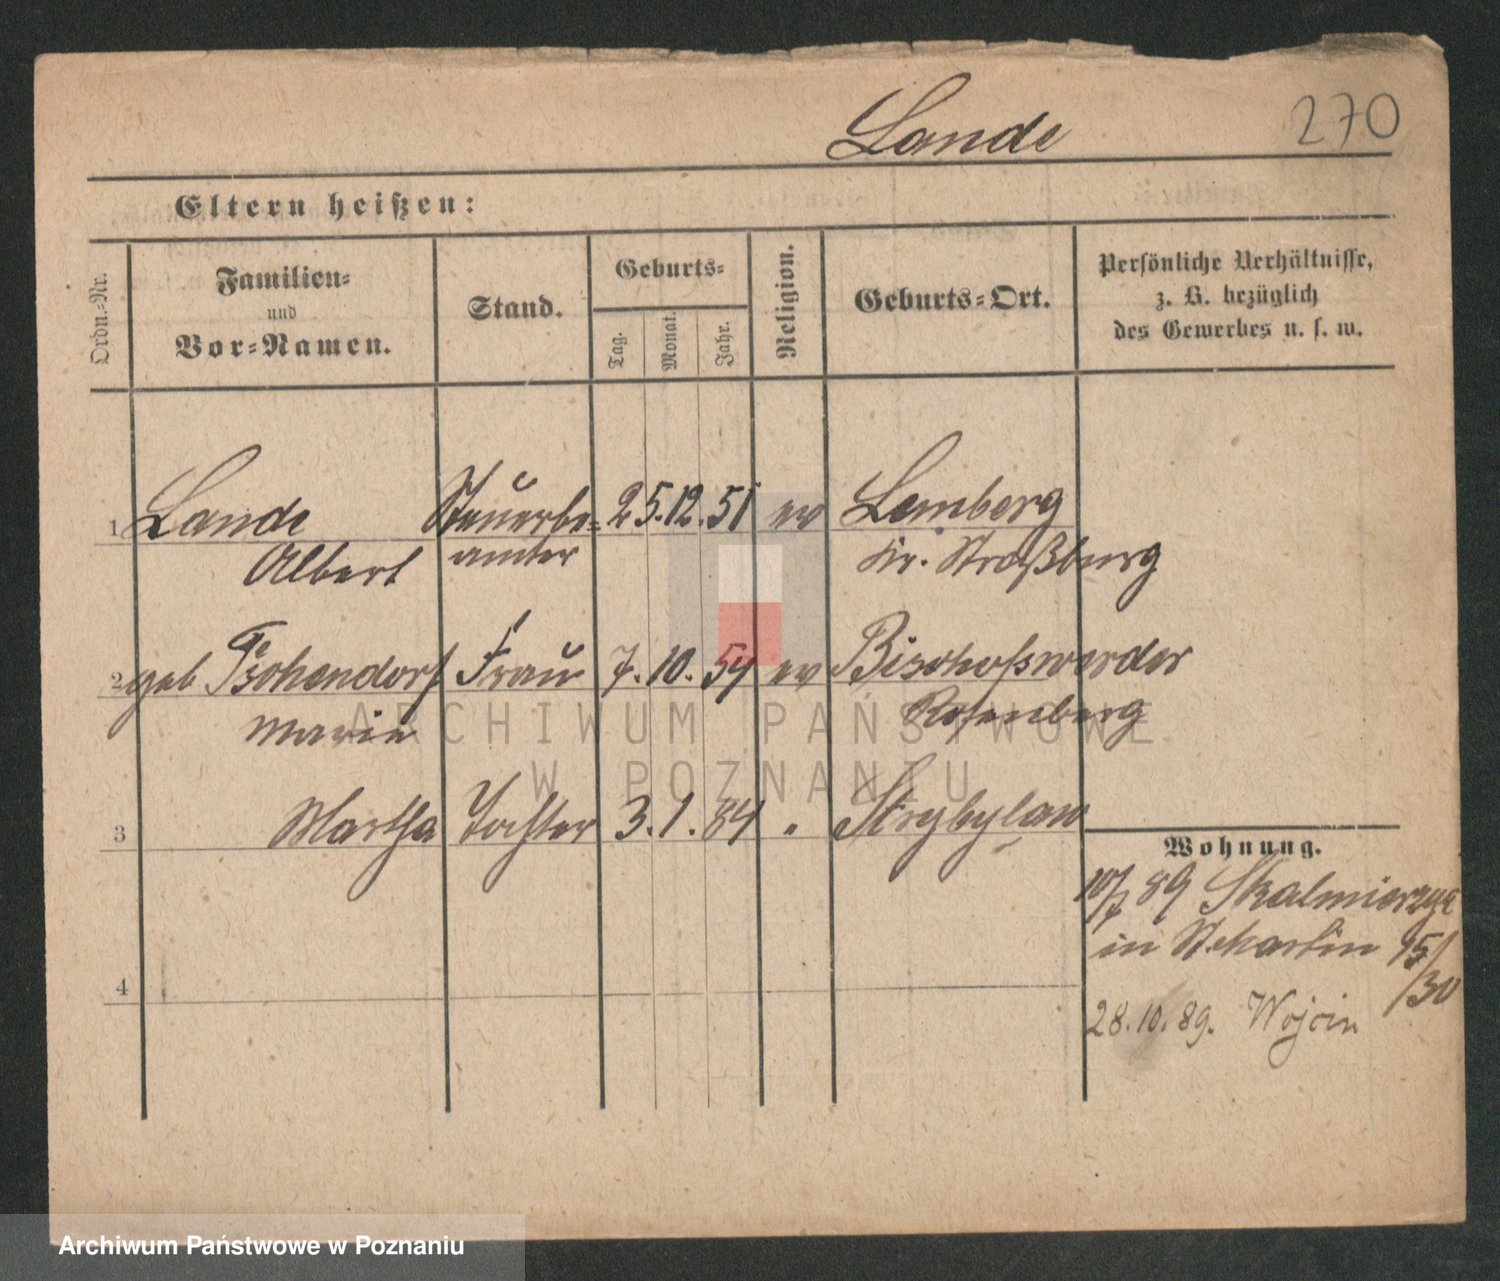 Lande
270
Eltern heißen:
Ordn.-Nr.
Familien-
und
Vor-Namen.
Stand.
Geburts-
Tag.
Monat.
Jahr.
Religion.
Geburts-Ort.
Persönliche Verhältnisse,
z. B. bezüglich
des Gewerbes u. s. w.
1 Lande Steuerbe- 25. 12. 51 ev Lemberg
Albert amter Kr. Straßburg
2 geb Tschendorf Frau 7. 10. 54 ev Bischofswerder
Marie Rosenberg
3 Martha Tochter 3. 1. 84 "
Wohnung.
10/7 89 Skalmierzyce
in St. Martin
4
28.10.89. Wojcin
ARCHIWUM PAŃSTWOWE
W POZNANIU
Archiwum Państwowe w Poznaniu